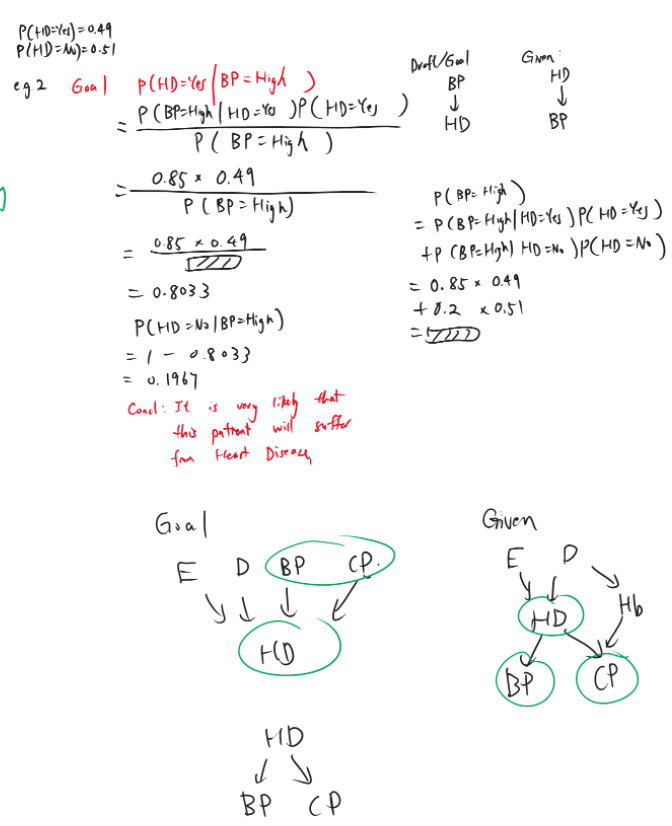 P(HD=Yes)=0.49
P(HD=No)=0.51
eg 2 Goal P(HD=Yes/BP=High )
= P(BP=High/HD=Yes )P(HD=Yes )
P( BP=High )
= 0.85 × 0.49
P(BP=High)
= 0.85 × 0.49
= 0.8033
P(HD=No/BP=High)
= 1 - 0.8033
= 0.1967
Concl: It is very likely that
this patient will suffer
from Heart Disease,
Draft/Goal
BP
↓
HD
Given:
HD
↓
BP
P(BP=High)
= P(BP=High/HD=Yes)P(HD=Yes)
+P (BP=High/HD=No)P(HD=No)
= 0.85 × 0.49
+ 0.2 × 0.51
=
Goal
E D BP CP.
HD
HD
BP CP
Given
E D
HD Hb
BP CP